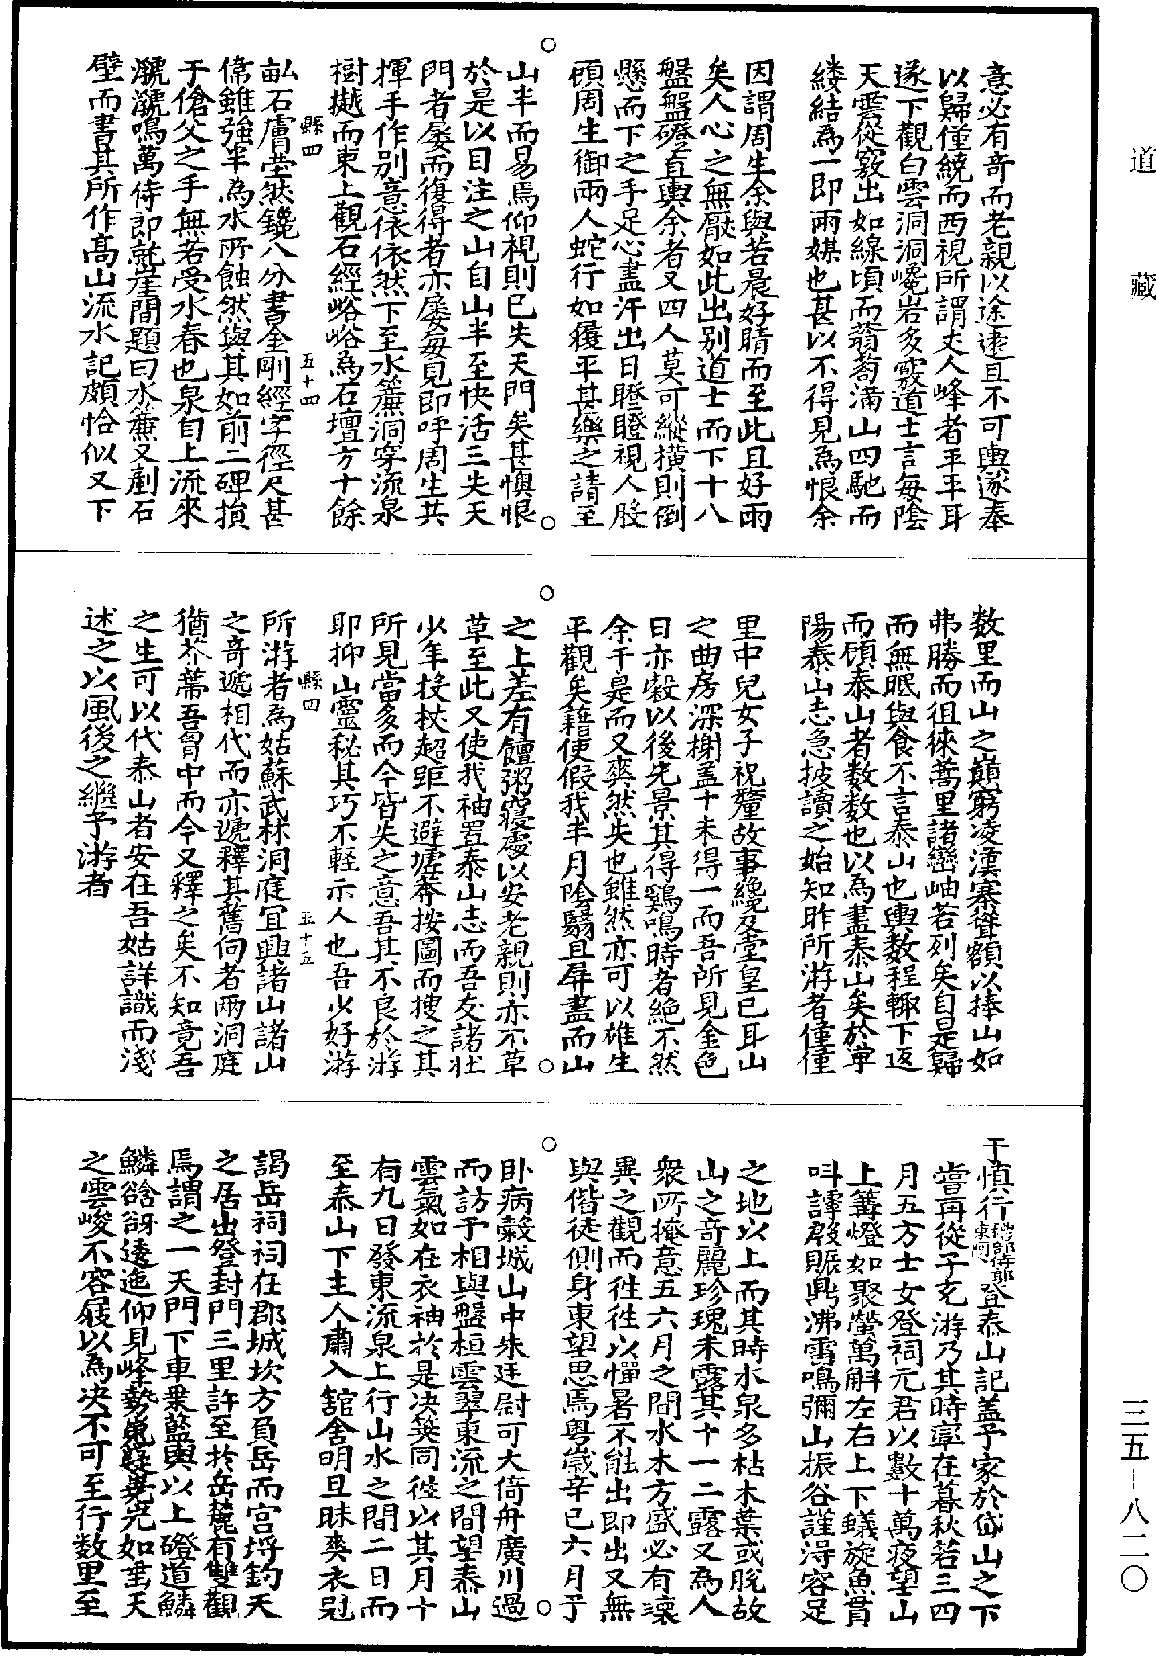 道藏
意必有奇而老親以途遠且不可輿遂奉
以歸僅繞而西視所謂丈人峰者平平耳
遂下觀白雲洞洞巉岩多竅道士言每陰
天雲從竅出如線頃而蓊蒭滿山四馳而
縷結為一即雨媒也甚以不得見為恨余
因謂周生余與若晨好睛而至此且好雨
矣人心之無厭如此出別道士而下十八
盤盤磴直輿余者又四人莫可縱橫則倒
懸而下之手足心盡汗出日瞪瞪視人股
頭周生御兩人蛇行如履平其樂之請至
山半而易焉仰視則已失天門矣甚懊恨
於是以目注之山自山半至快活三失天
門者屢而復得者亦屢每見即呼周生共
揮手作別意依依然下至水簾洞穿流泉
樹樾而東上觀石經峪峪為石壇方十餘
畝石膚瑩然鐫八分書金剛經字徑尺甚
偉雖強半為水所蝕然與其如前二碑損
于傖父之手無若受水舂也泉自上流來
瀧瀧鳴萬侍郎就崖間題曰水簾又剷石
壁而書其所作高山流水記頗恰似又下
縣四
五十四
数里而山之巔窮淩漢寨聳額以捧山如
弗勝而徂徠蒿里諸巒岫若列矣自是歸
而無眠與食不言泰山也輿数程輙下返
而頋泰山者数数也以為盡泰山矣於寧
陽泰山志急披讀之始知昨所游者僅僅
里中兒女子祝釐故事纔及堂皇已耳山
之曲房深榭盖十未得一而吾所見金色
日亦穀以後先景其得鷄鳴時者絶不然
余于是而又爽然失也雖然亦可以雄生
平觀矣藉使假我半月陰翳且屏盡而山
之上差有饘粥寢處以安老親則亦不草
草至此又使我袖置泰山志而吾友諸壯
少年投杖超距不避壚莽按圖而搜之其
所見當多而今皆失之意吾其不良於游
耶抑山靈秘其巧不輕示人也吾少好游
所游者為姑蘇武林洞庭宜興諸山諸山
之奇遞相代而亦遞釋其舊向者兩洞庭
猶芥蔕吾胷中而今又釋之矣不知竟吾
之生可以代泰山者安在吾姑詳識而淺
述之以風後之繼予游者
縣四
五十五
于慎行禮部侍郎東阿登泰山記蓋予家於岱山之下
嘗再從子充游乃其時率在暮秋若三四
月五方士女登祠元君以數十萬夜望山
上篝燈如聚螢萬斛左右上下蟻旋魚貫
呌謼殷賑鼎沸雷鳴彌山振谷謹淂容足
之地以上而其時水泉多枯木葉或脫故
山之奇麗珍瑰未露其十一二露又為人
衆所掩意五六月之間水木方盛必有瓌
異之觀而徃徃以憚暑不能出即出又無
與偕徒側身東望思焉粤歲辛巳六月予
卧病糓城山中朱廷尉可大倚舟廣川過
而訪予相與盤桓雲翠東流之間望泰山
雲氣如在衣袖於是决筴同徃以其月十
有九日發東流泉上行山水之間二日而
至泰山下主人肅入舘舍明旦昧爽衣冠
謁岳祠祠在郡城坎方負岳而宮埒鈞天
之居出登封門三里許至於岳麓有雙觀
焉謂之一天門下車乗藍輿以上磴道鱗
鱗谽谺逶迤仰見峰勢如垂天
之雲峻不容屐以為决不可至行数里至
三五—八二〇